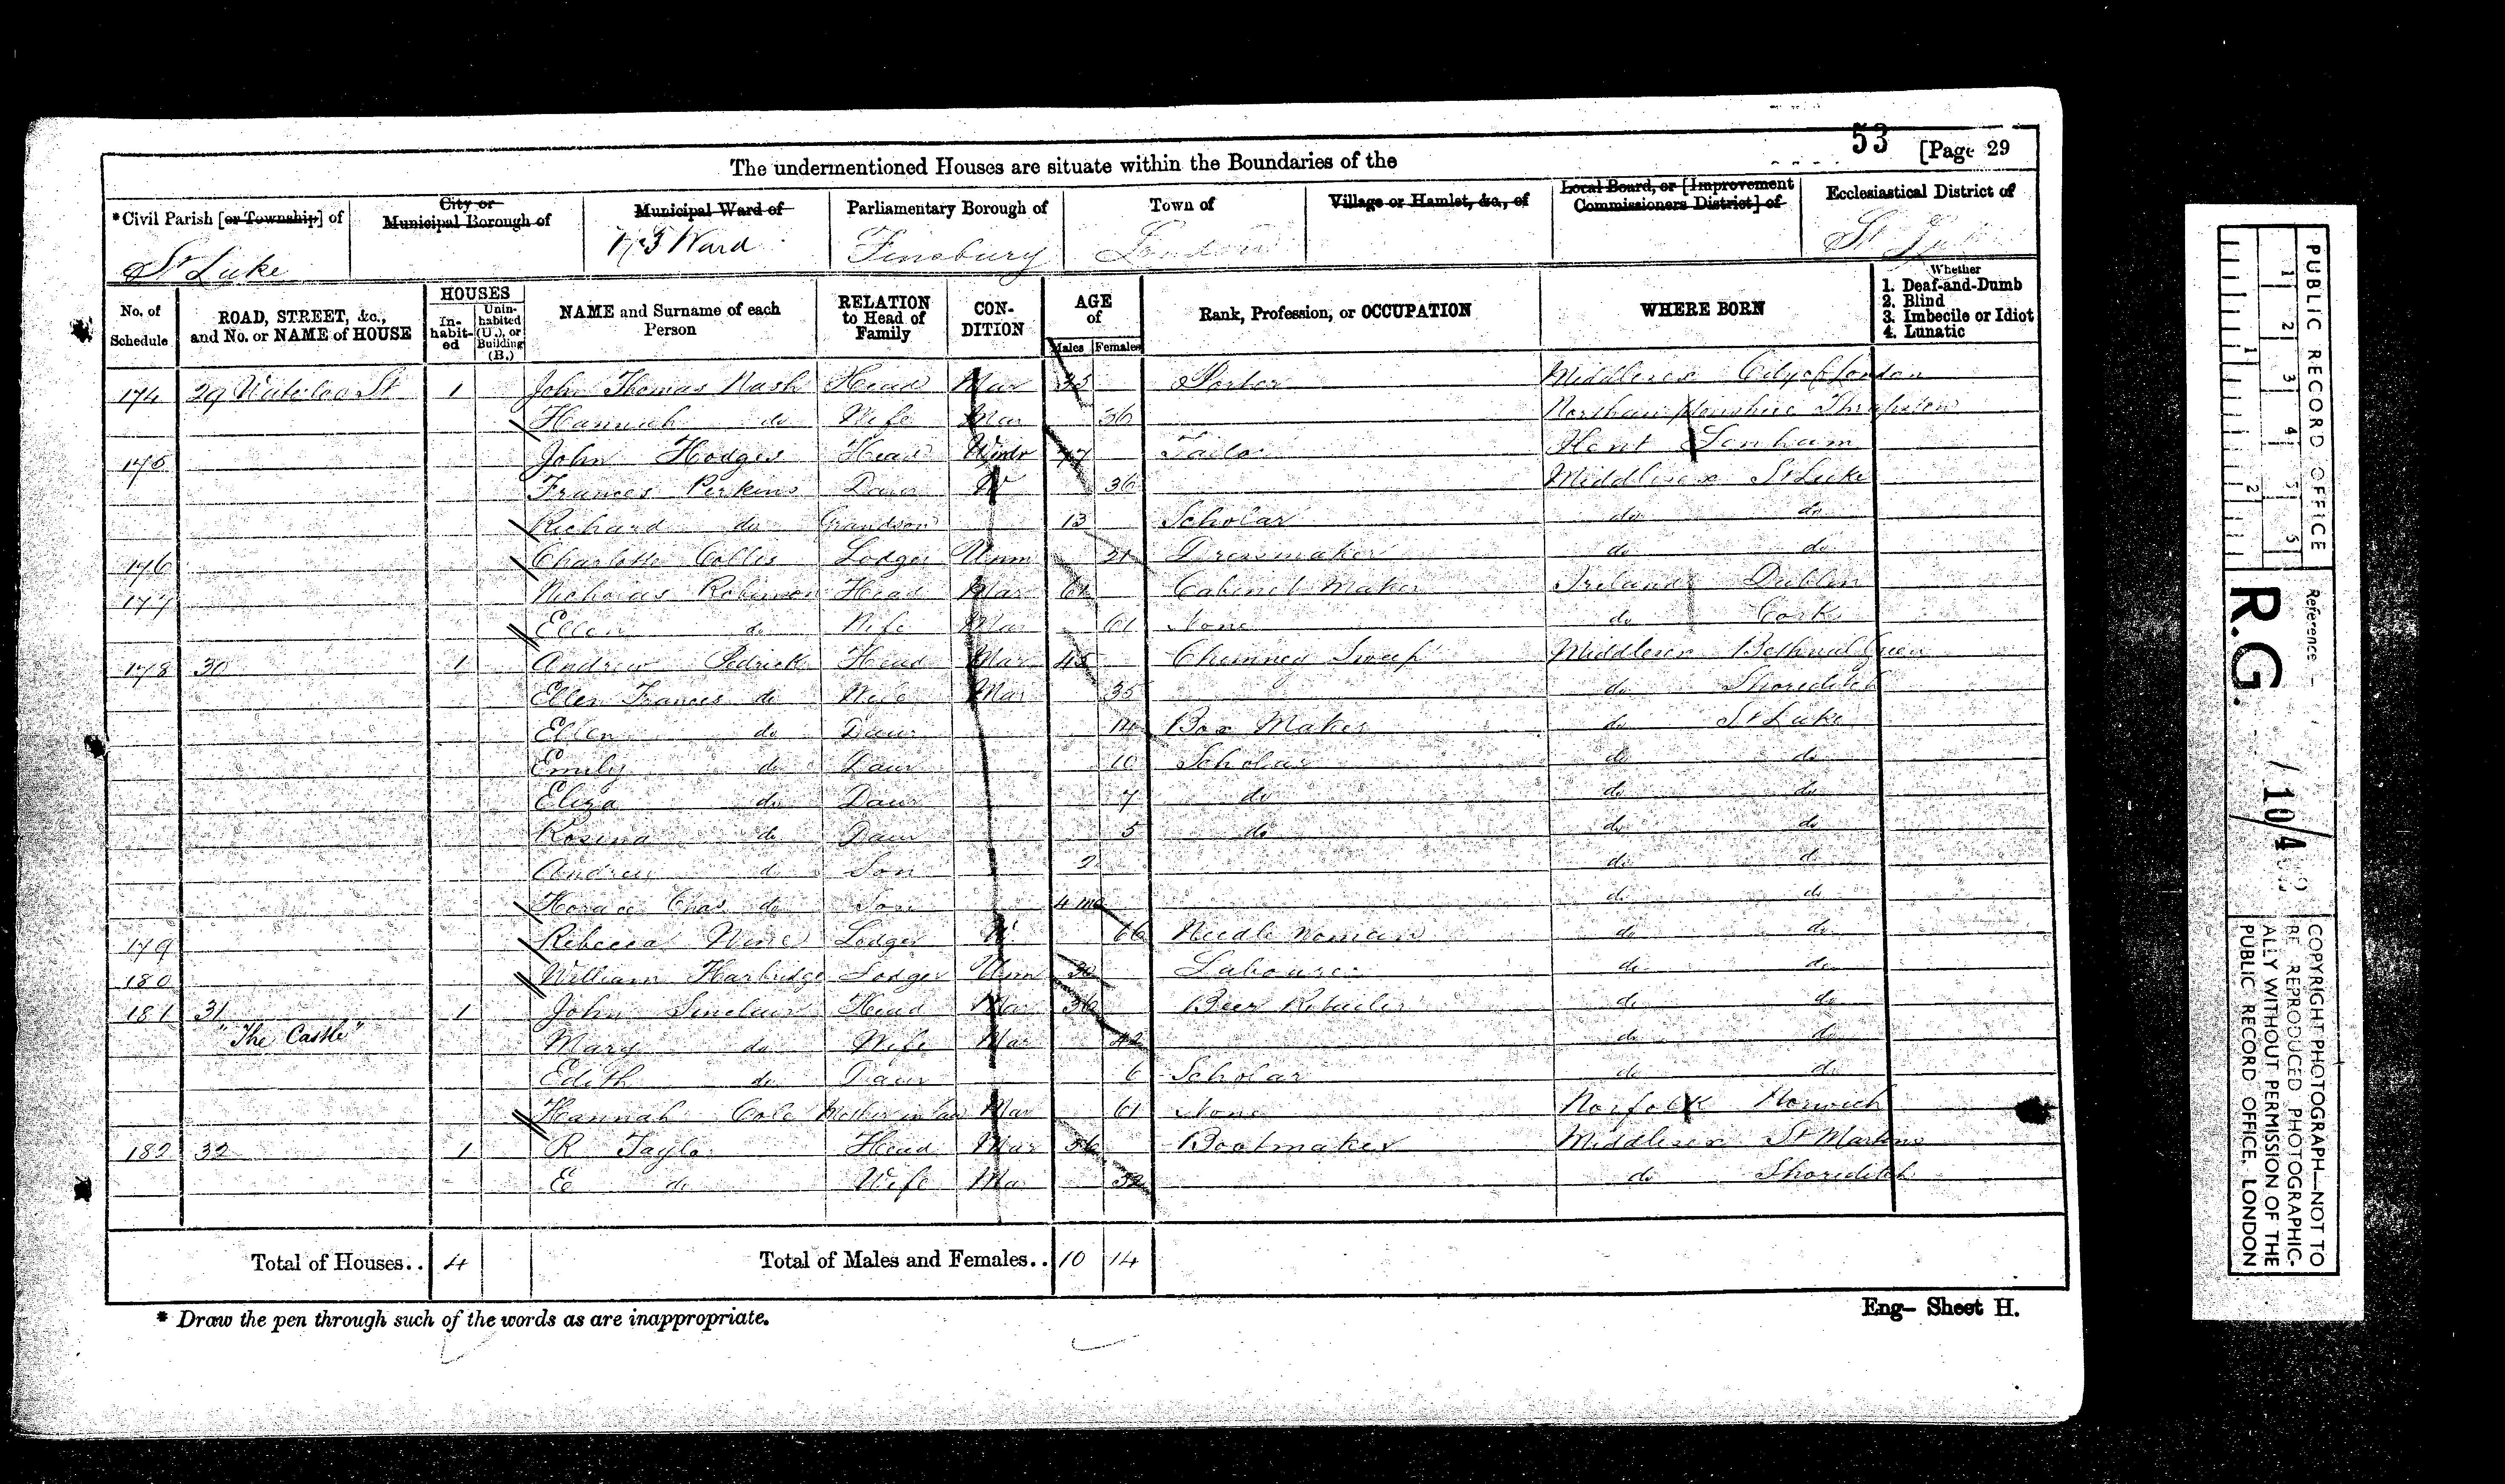 53 [Page 29
The undermentioned Houses are situate within the Boundaries of the
*Civil Parish [or Township] of City or Municipal Borough of Municipal Ward of Parliamentary Borough of Town of Village or Hamlet, &c., of Local Board, or [Improvement Commissioners District] of Ecclesiastical District of
St Luke Ward Finsbury London St
No. of Schedule ROAD, STREET, &c., and No. or NAME of HOUSE HOUSES In-habit-ed Unin-habited (U.), or Building (B.) NAME and Surname of each Person RELATION to Head of Family CON-DITION AGE of Males Females Rank, Profession, or OCCUPATION WHERE BORN Whether 1. Deaf-and-Dumb 2. Blind 3. Imbecile or Idiot 4. Lunatic
174 29 Waterloo St 1 John Thomas Nash Head Mar 35 Porter Middlesex City of London
Hannah do Wife Mar 36 Northamptonshire
175 John Hodges Head Tailor Kent Lenham
Frances Perkins Daur W 36 Middlesex St Luke
Richard do Grandson 13 Scholar do do
176 Charlotte Collis Lodger Unm 21 Dressmaker do do
177 Nicholas Robinson Head Mar Cabinet Maker Ireland Dublin
Ellen do Wife Mar 61 None do Cork
178 30 1 Andrew Pedrick Head Mar 45 Chimney Sweep Middlesex Bethnal Green
Ellen Frances do Wife Mar 35 do Shoreditch
Ellen do Daur 14 Box Maker do St Luke
Emily do Daur 10 Scholar do do
Eliza do Daur 7 do do do
Rosina do Daur 5 do do do
Andrew do Son 2 do do
Horace Chas do Son 4 mo do do
179 Rebecca Lodger W 66 Needle woman do do
180 William Harbridge Lodger Unm 30 Labourer do do
181 31 1 John Sinclair Head Mar 36 Beer Retailer do do
"The Castle" Mary do Wife Mar 42 do do
Edith do Daur 6 Scholar do do
Hannah Cole Mother in law Mar 61 None Norfolk Norwich
182 32 1 R Taylor Head Mar 56 Bootmaker Middlesex St Martins
E do Wife Mar 52 do Shoreditch
Total of Houses.. 4 Total of Males and Females.. 10 14
* Draw the pen through such of the words as are inappropriate.
Eng— Sheet H.
PUBLIC RECORD OFFICE
1 2 3 4 5
1 2
Reference
R.G. 10/4
COPYRIGHT PHOTOGRAPH—NOT TO
BE REPRODUCED PHOTOGRAPHIC-
ALLY WITHOUT PERMISSION OF THE
PUBLIC RECORD OFFICE, LONDON